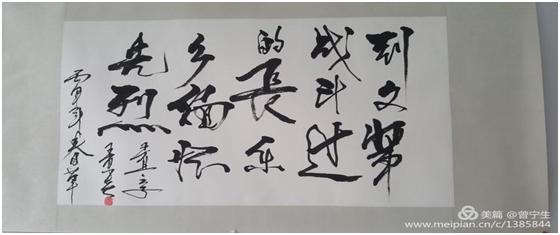 到父輩
战斗过
的長乐
乡缅怀
先烈
丙申年春草
美篇 @曾宁生
www.meipian.cn/c/1385844